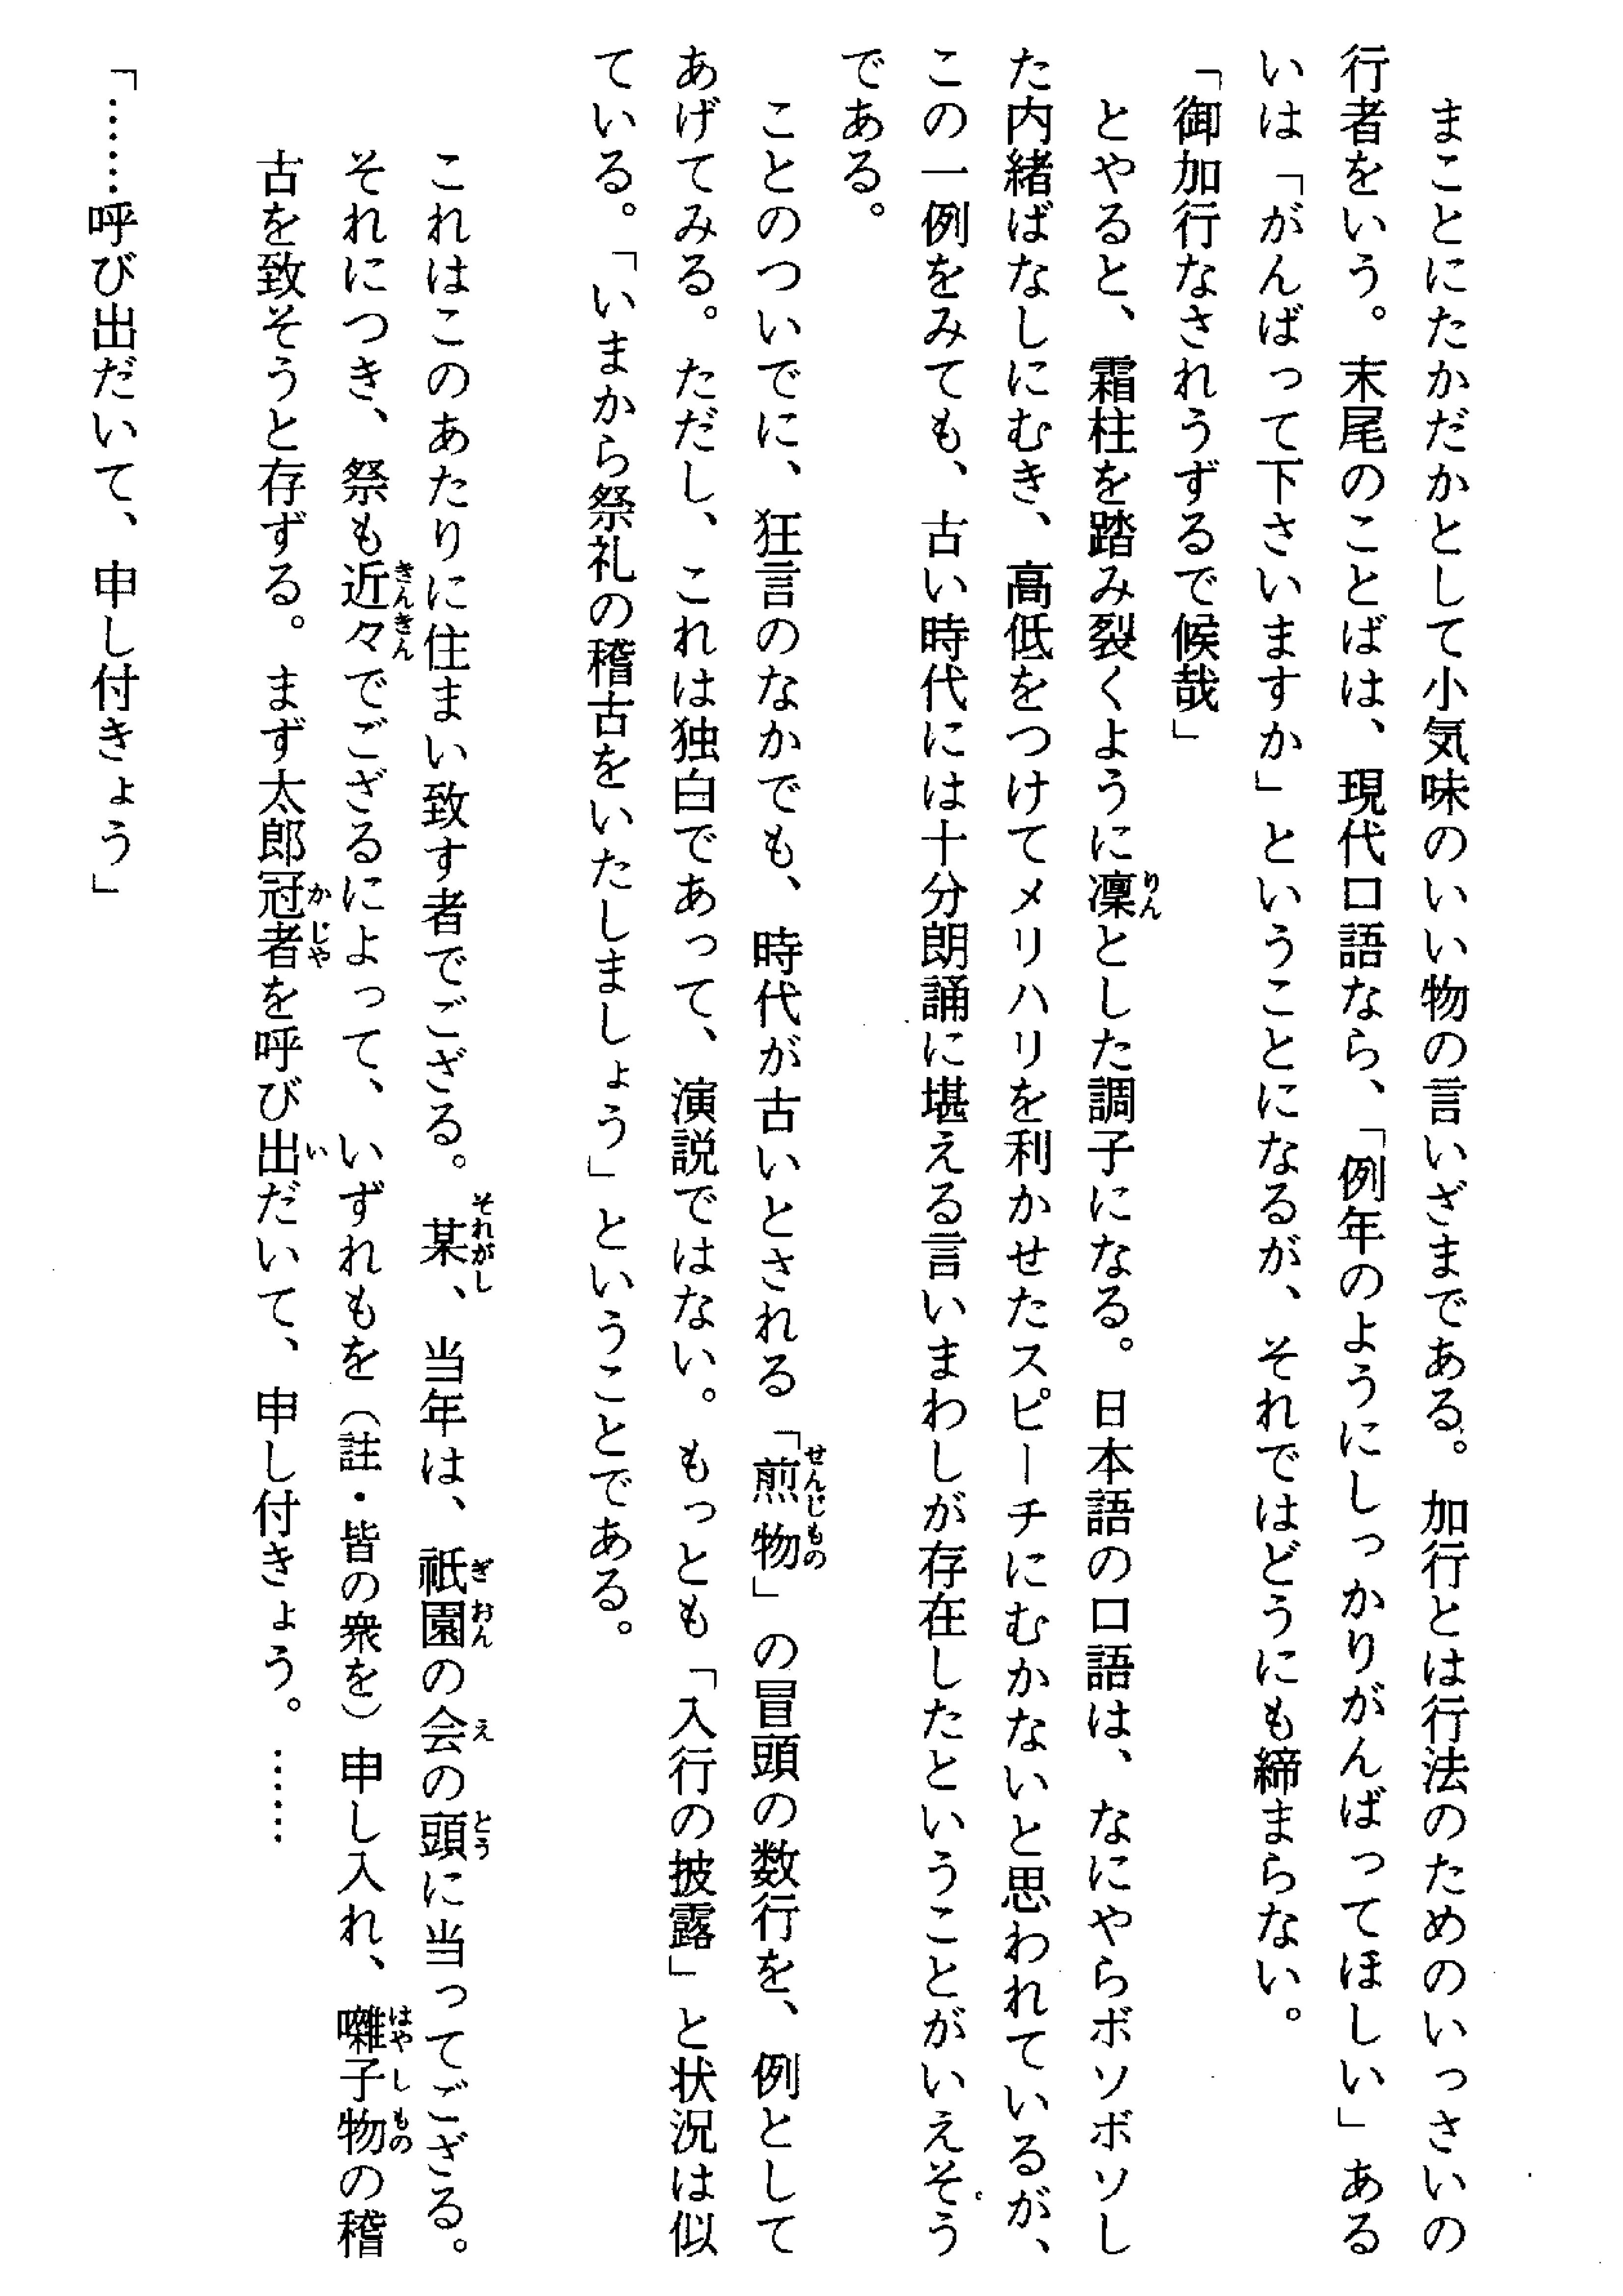 まことにたかだかとして小気味のいい物の言いざまである。加行とは行法のためのいっさいの
行者をいう。末尾のことばは、現代口語なら、「例年のようにしっかりがんばってほしい」ある
いは「がんばって下さいますか」ということになるが、それではどうにも締まらない。
「御加行なされうずるで候哉」
とやると、霜柱を踏み裂くように凜とした調子になる。日本語の口語は、なにやらボソボソし
た内緒ばなしにむき、高低をつけてメリハリを利かせたスピーチにむかないと思われているが、
この一例をみても、古い時代には十分朗誦に堪える言いまわしが存在したということがいえそう
である。
ことのついでに、狂言のなかでも、時代が古いとされる「煎物」の冒頭の数行を、例として
あげてみる。ただし、これは独白であって、演説ではない。もっとも「入行の披露」と状況は似
ている。「いまから祭礼の稽古をいたしましょう」ということである。
これはこのあたりに住まい致す者でござる。某、当年は、祇園の会の頭に当ってござる。
それにつき、祭も近々でござるによって、いずれもを（註・皆の衆を）申し入れ、囃子物の稽
古を致そうと存ずる。まず太郎冠者を呼び出だいて、申し付きょう。……
「……呼び出だいて、申し付きょう」